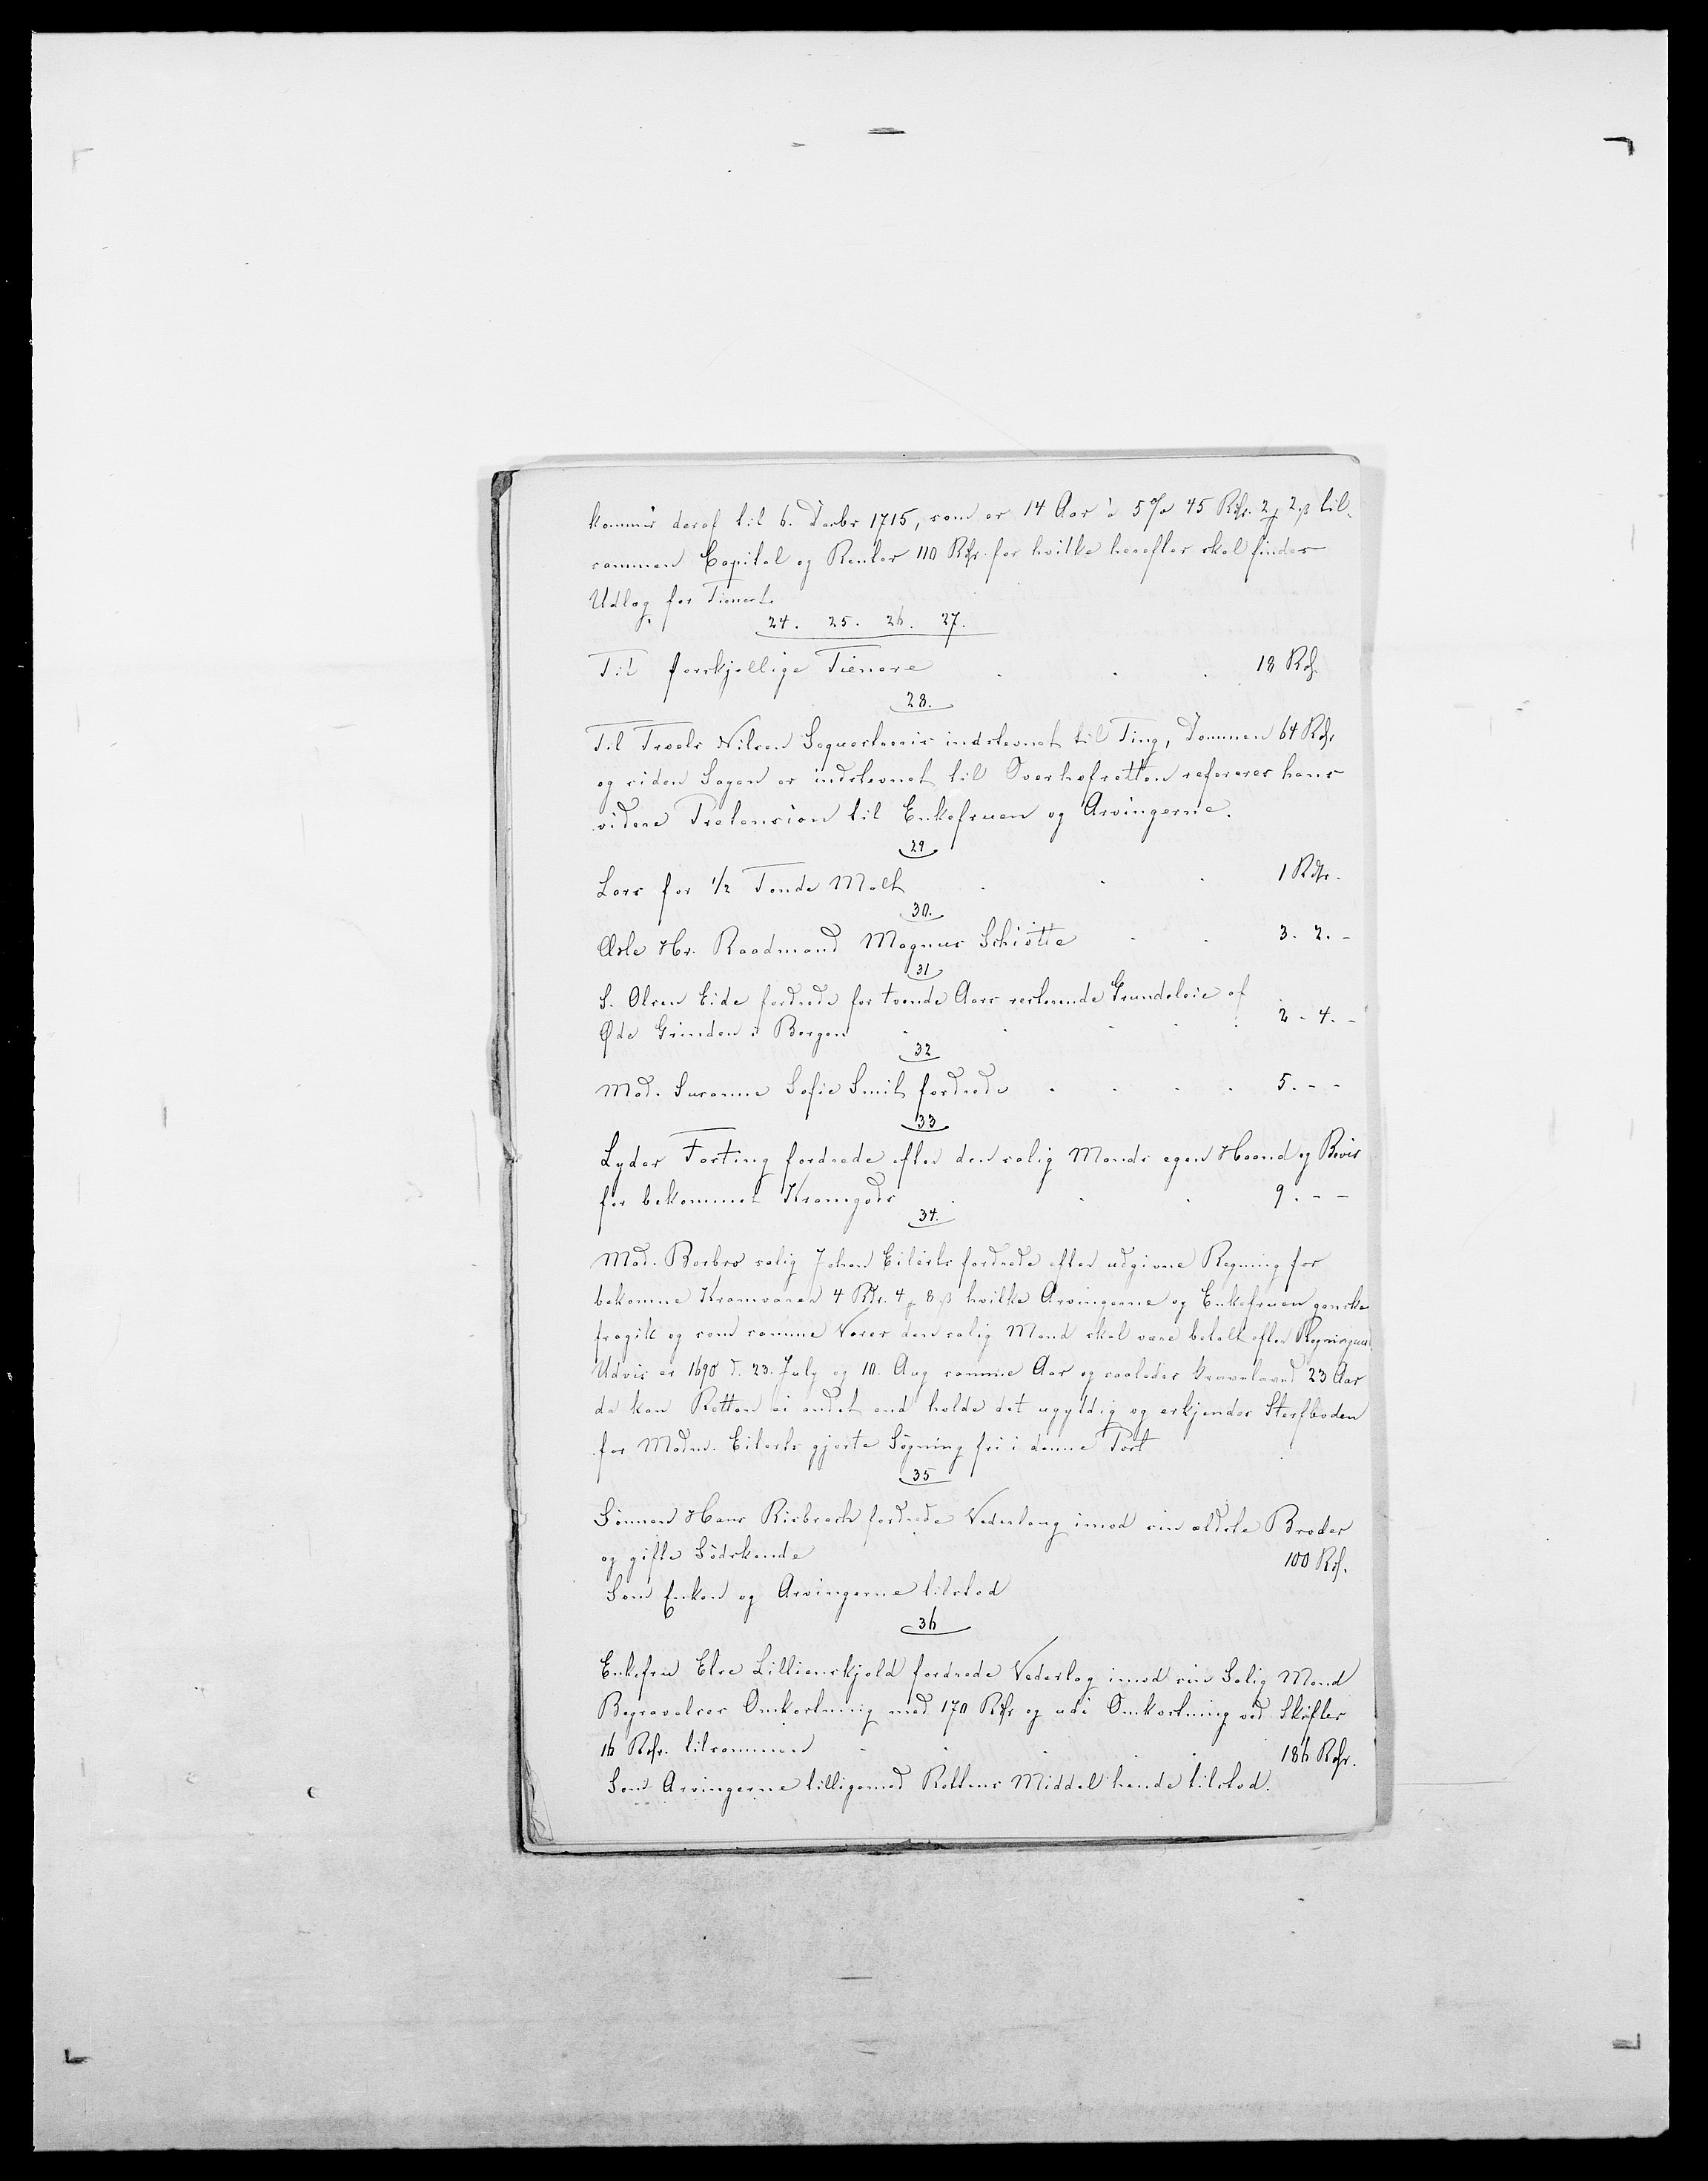 kommer deraf til 6. Decbr 1715, som er 14 Aar à 5 % 45 Rdlr. 2 ƒ 2 β til-
sammen Capital og Renter 110 Rdlr. for hvilke herefter skal findes
Udlæg for Tienest.
24. 25. 26. 27.
Til forskjellige Tienere . . . 18 Rdl.
28.
Til Troels Nilsen Seqvesteris indstevnet til Ting, Dommen 64 Rdlr
og siden Sagen er indstevnet til Overhofretten refereres hans
videre Pretension til Enkefruen og Arvingerne.
29
Lars for 1/2 Tønde Malt . . . 1 Rdlr.
30.
Æsle Hr. Raadmand Magnus Schiøtte . . 3. 2. -
31
S. Olsen Eide fordrede for tvende Aars resterende Grundeleie af
Øde Grinden i Bergen . . . . . 2 - 4. -
32
Mad. Susanne Sofie Smit fordrede . . . . 5. - -
33
Lyder Fasting fordrede efter den salig Mands egen Haand og Bevis
for bekommet Kramgods . . . 9. - -
34.
Mad. Barbra salig Johan Eilerts fordrede efter udgivne Regning for
bekomne Kramvarer 4 Rdr. 4 ƒ 8 β hvilke Arvingerne og Enkefruen ganske
fragik og som samme Varer den salig Mand skal være betalt efter Regningens
Udvis er 1690 d. 23. July og 10. Aug samme Aar og saaledes 23 Aar
da kan Retten ei andet end holde det ugyldig og erkjender Sterfboden
for Madm. Eilerts gjorte Søgning fri i denne Post
35
Sönnen Hans Risbrech fordrede Vederlaug imod sin ældste Broder
og gifte Södskende 100 Rdl.
Som Enken og Arvingerne tilstod
36
Enkefru Else Lillienskjold fordrede Vederlag imod sin Salig Mand
Begravelses Omkostning med 170 Rdlr og udi Omkostning ved Skifter
16 Rdlr. tilsammen . . . 186 Rdlr.
Som Arvingerne tilligemed Rettens Middel hende tilstod.